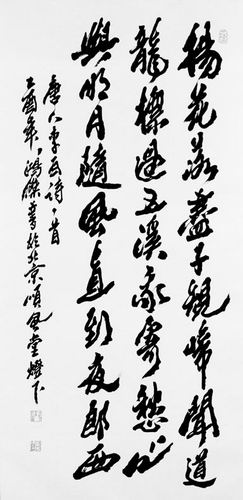 楊花落盡子規啼聞道
龍標過五溪我寄愁心
與明月隨風直到夜郎西
唐人李白詩一首
乙酉年鴻傑書於北京風堂燈下